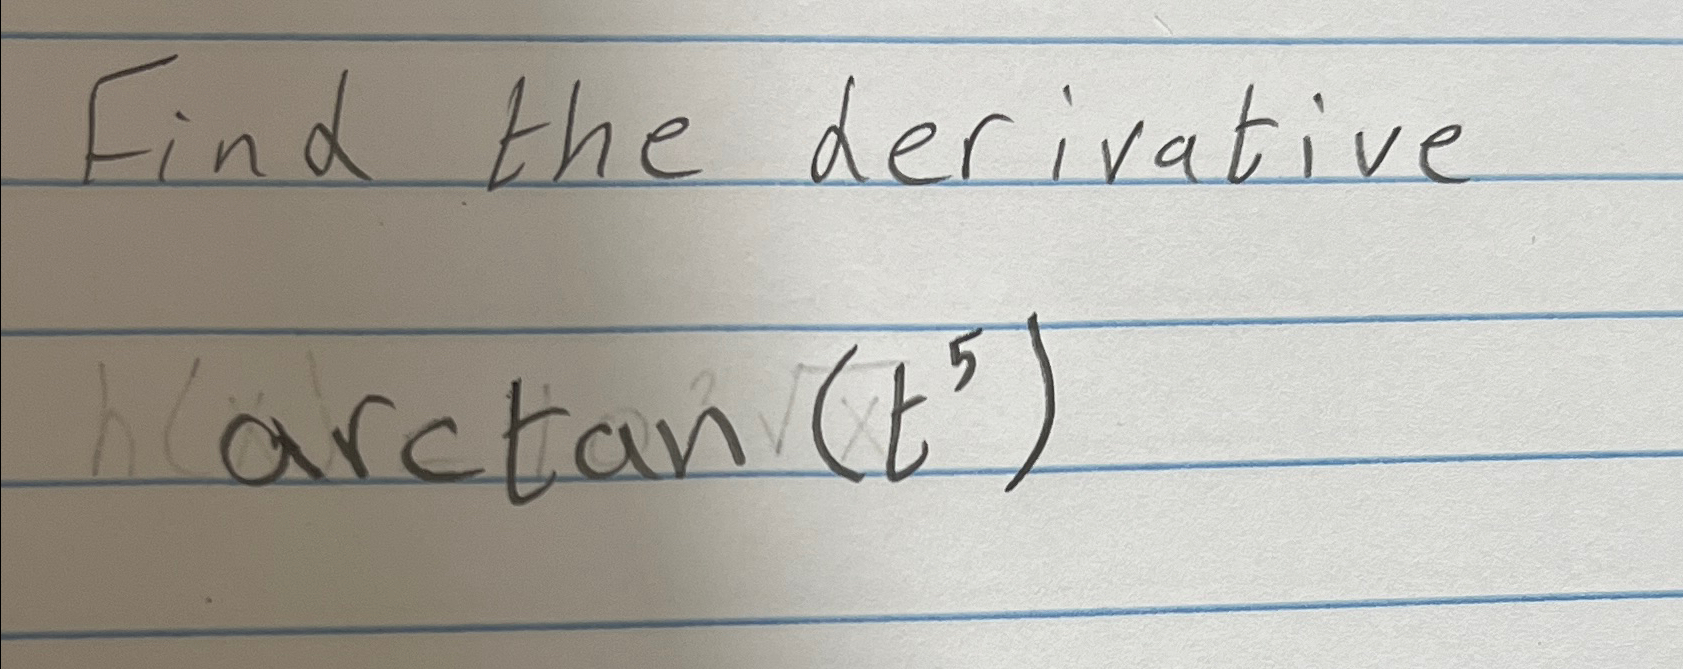 Find the derivative
arctan(t⁵)